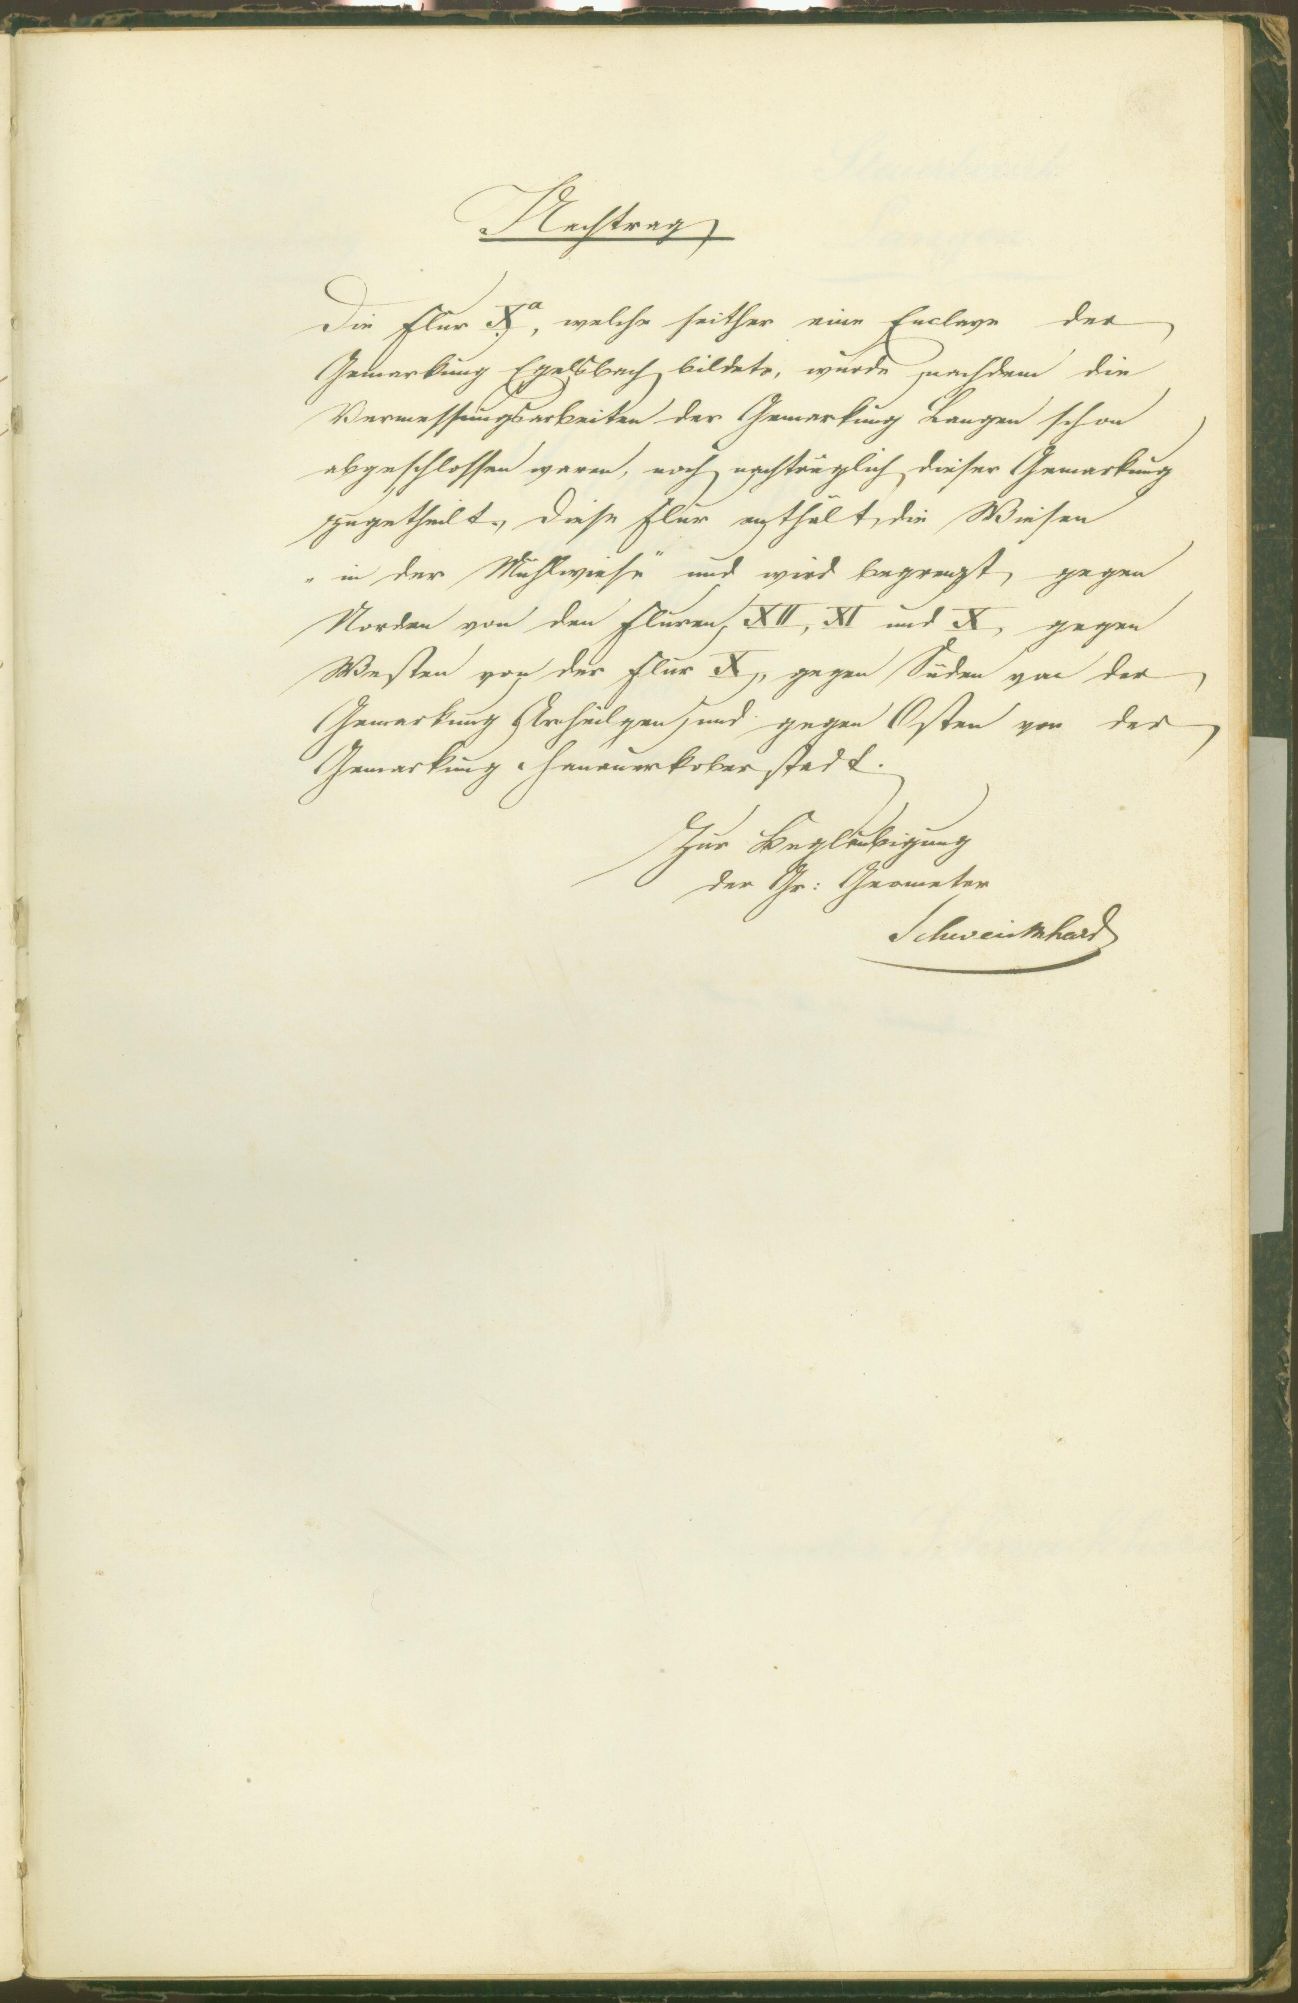 Nachtrag
Die Flur X.ᵃ, welche seither eine Enclave der
Gemarkung Egelsbach bildete, wurde nachdem die
Vermessungsarbeiten der Gemarkung Langen schon
abgeschlossen waren, noch nachträglich dieser Gemarkung
zugetheilt. Diese Flur enthält die Wiesen
„in der Mühlwiese“ und wird begrenzt, gegen
Norden von den Fluren XII, XI und X, gegen
Westen von der Flur X, gegen Süden von der
Gemarkung Arheilgen und gegen Osten von der
Gemarkung Hanauerkoberstadt.
Zur Beglaubigung
der Gr: Geometer